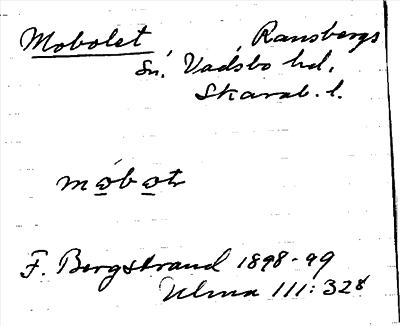 Mobolet Ransbergs
Sn. Vadsbo hd.
Skarab. l.
F. Bergstrand 1898-99
Ulma 111:328